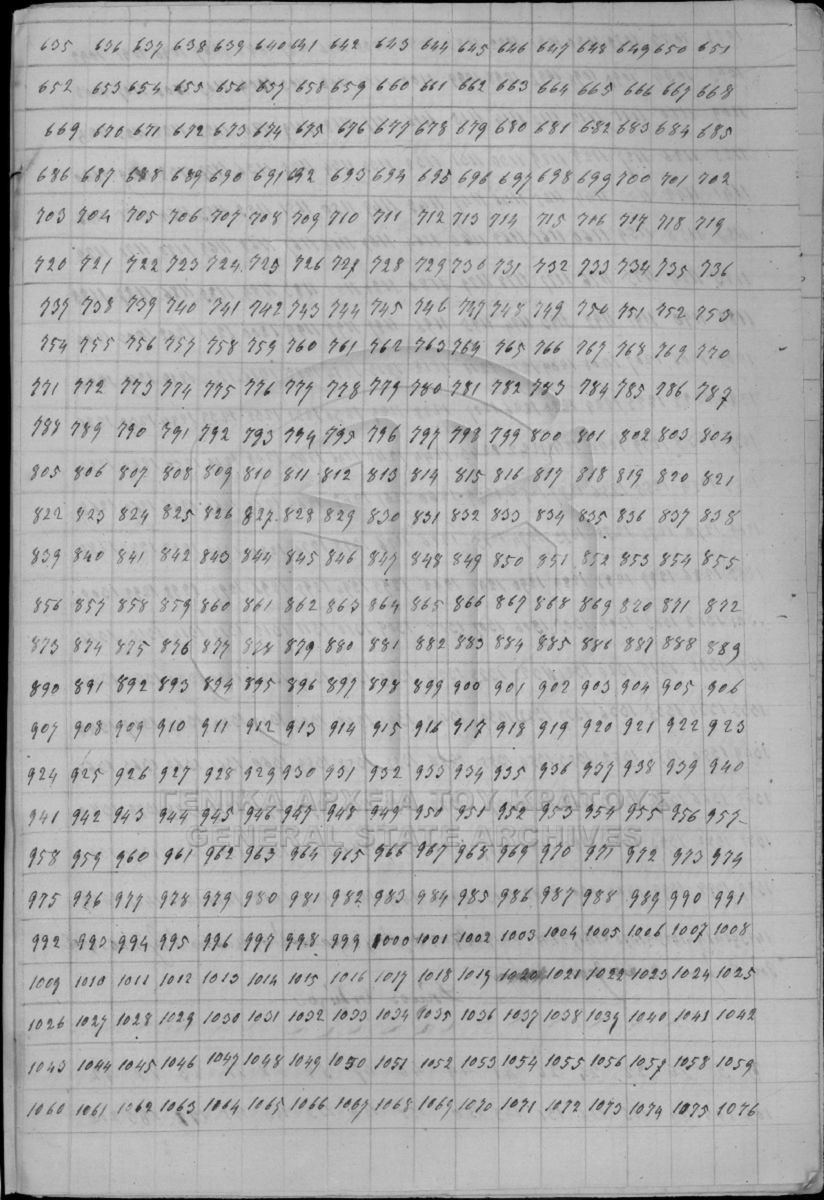 635 636 637 638 639 640 641 642 643 644 645 646 647 648 649 650 651
652 653 654 655 656 657 658 659 660 661 662 663 664 665 666 667 668
669 670 671 672 673 674 675 676 677 678 679 680 681 682 683 684 685
686 687 688 689 690 691 692 693 694 695 696 697 698 699 700 701 702
703 704 705 706 707 708 709 710 711 712 713 714 715 716 717 718 719
720 721 722 723 724 725 726 727 728 729 730 731 732 733 734 735 736
737 738 739 740 741 742 743 744 745 746 747 748 749 750 751 752 753
754 755 756 757 758 759 760 761 762 763 764 765 766 767 768 769 770
771 772 773 774 775 776 777 778 779 780 781 782 783 784 785 786 787
788 789 790 791 792 793 794 795 796 797 798 799 800 801 802 803 804
805 806 807 808 809 810 811 812 813 814 815 816 817 818 819 820 821
822 823 824 825 826 827 828 829 830 831 832 833 834 835 836 837 838
839 840 841 842 843 844 845 846 847 848 849 850 851 852 853 854 855
856 857 858 859 860 861 862 863 864 865 866 867 868 869 870 871 872
873 874 875 876 877 878 879 880 881 882 883 884 885 886 887 888 889
890 891 892 893 894 895 896 897 898 899 900 901 902 903 904 905 906
907 908 909 910 911 912 913 914 915 916 917 918 919 920 921 922 923
924 925 926 927 928 929 930 931 932 933 934 935 936 937 938 939 940
ΓΕΝΙΚΑ ΑΡΧΕΙΑ ΤΟΥ ΚΡΑΤΟΥΣ
941 942 943 944 945 946 947 948 949 950 951 952 953 954 955 956 957
GENERAL STATE ARCHIVES
958 959 960 961 962 963 964 965 966 967 968 969 970 971 972 973 974
975 976 977 978 979 980 981 982 983 984 985 986 987 988 989 990 991
992 993 994 995 996 997 998 999 1000 1001 1002 1003 1004 1005 1006 1007 1008
1009 1010 1011 1012 1013 1014 1015 1016 1017 1018 1019 1020 1021 1022 1023 1024 1025
1026 1027 1028 1029 1030 1031 1032 1033 1034 1035 1036 1037 1038 1039 1040 1041 1042
1043 1044 1045 1046 1047 1048 1049 1050 1051 1052 1053 1054 1055 1056 1057 1058 1059
1060 1061 1062 1063 1064 1065 1066 1067 1068 1069 1070 1071 1072 1073 1074 1075 1076